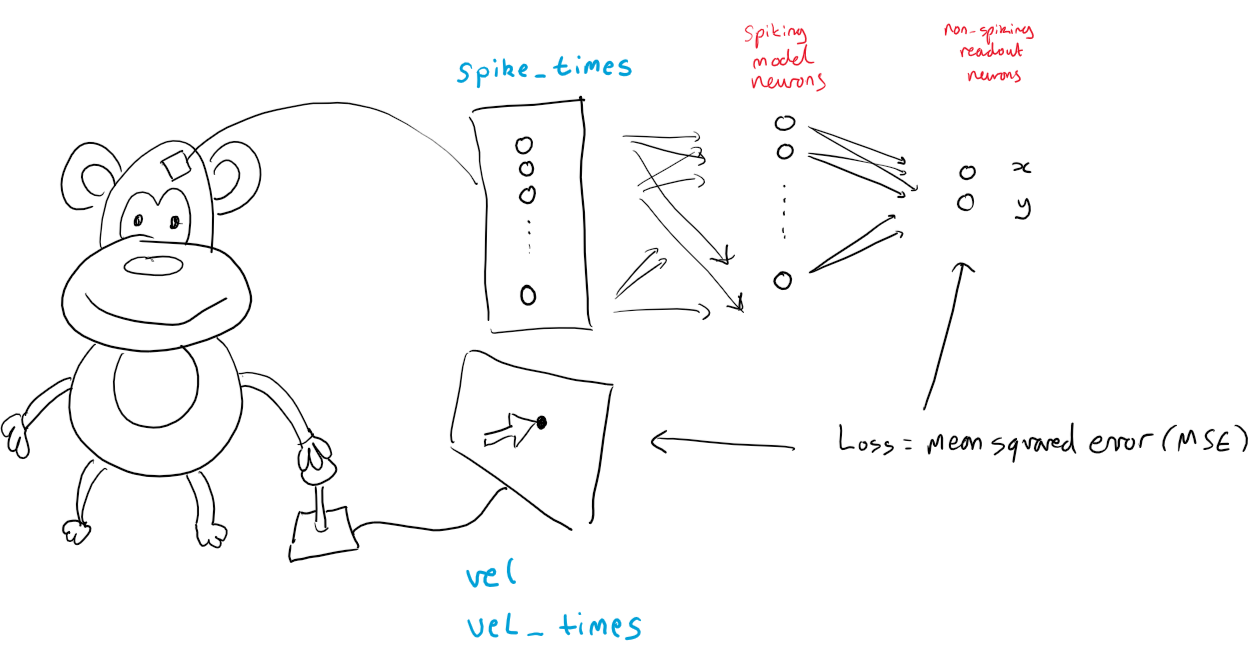 spike_times
Spiking
model
neurons
non-spiking
readout
neurons
x
y
Loss = mean squared error (MSE)
vel
vel_times